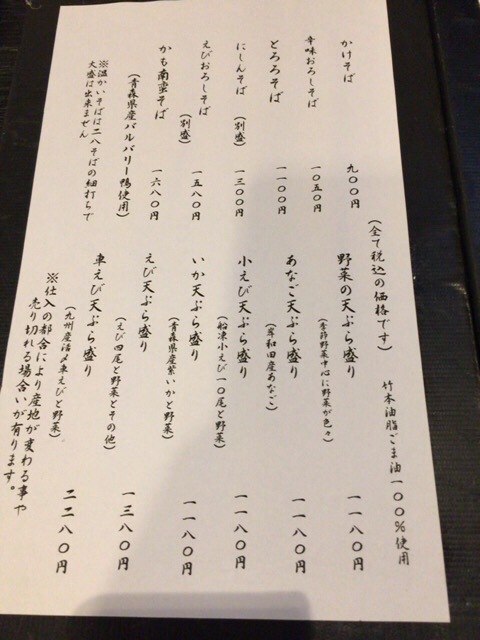 かけそば 九〇〇円
辛味おろしそば 一〇五〇円
とろろそば 一一〇〇円
にしんそば (別盛) 一三〇〇円
えびおろしそば (別盛) 一五八〇円
かも南蛮そば 一六八〇円
(青森県産バルバリー鴨使用)
※温かいそばは二八そばの細打ちで
大盛は出来ません
竹本油脂ごま油一〇〇％使用
(全て税込の価格です)
野菜の天ぷら盛り 一一八〇円
(季節野菜中心に野菜が色々)
あなご天ぷら盛り 一一八〇円
(岩和田産あなご)
小えび天ぷら盛り 一一八〇円
(船凍小えび一〇尾と野菜)
いか天ぷら盛り 一一八〇円
(青森県産紫いかと野菜)
えび天ぷら盛り 一三八〇円
(えび四尾と野菜とその他)
車えび天ぷら盛り 二二八〇円
(九州産活〆車えびと野菜)
※仕入の都合により産地が変わる事や
売り切れる場合いが有ります。